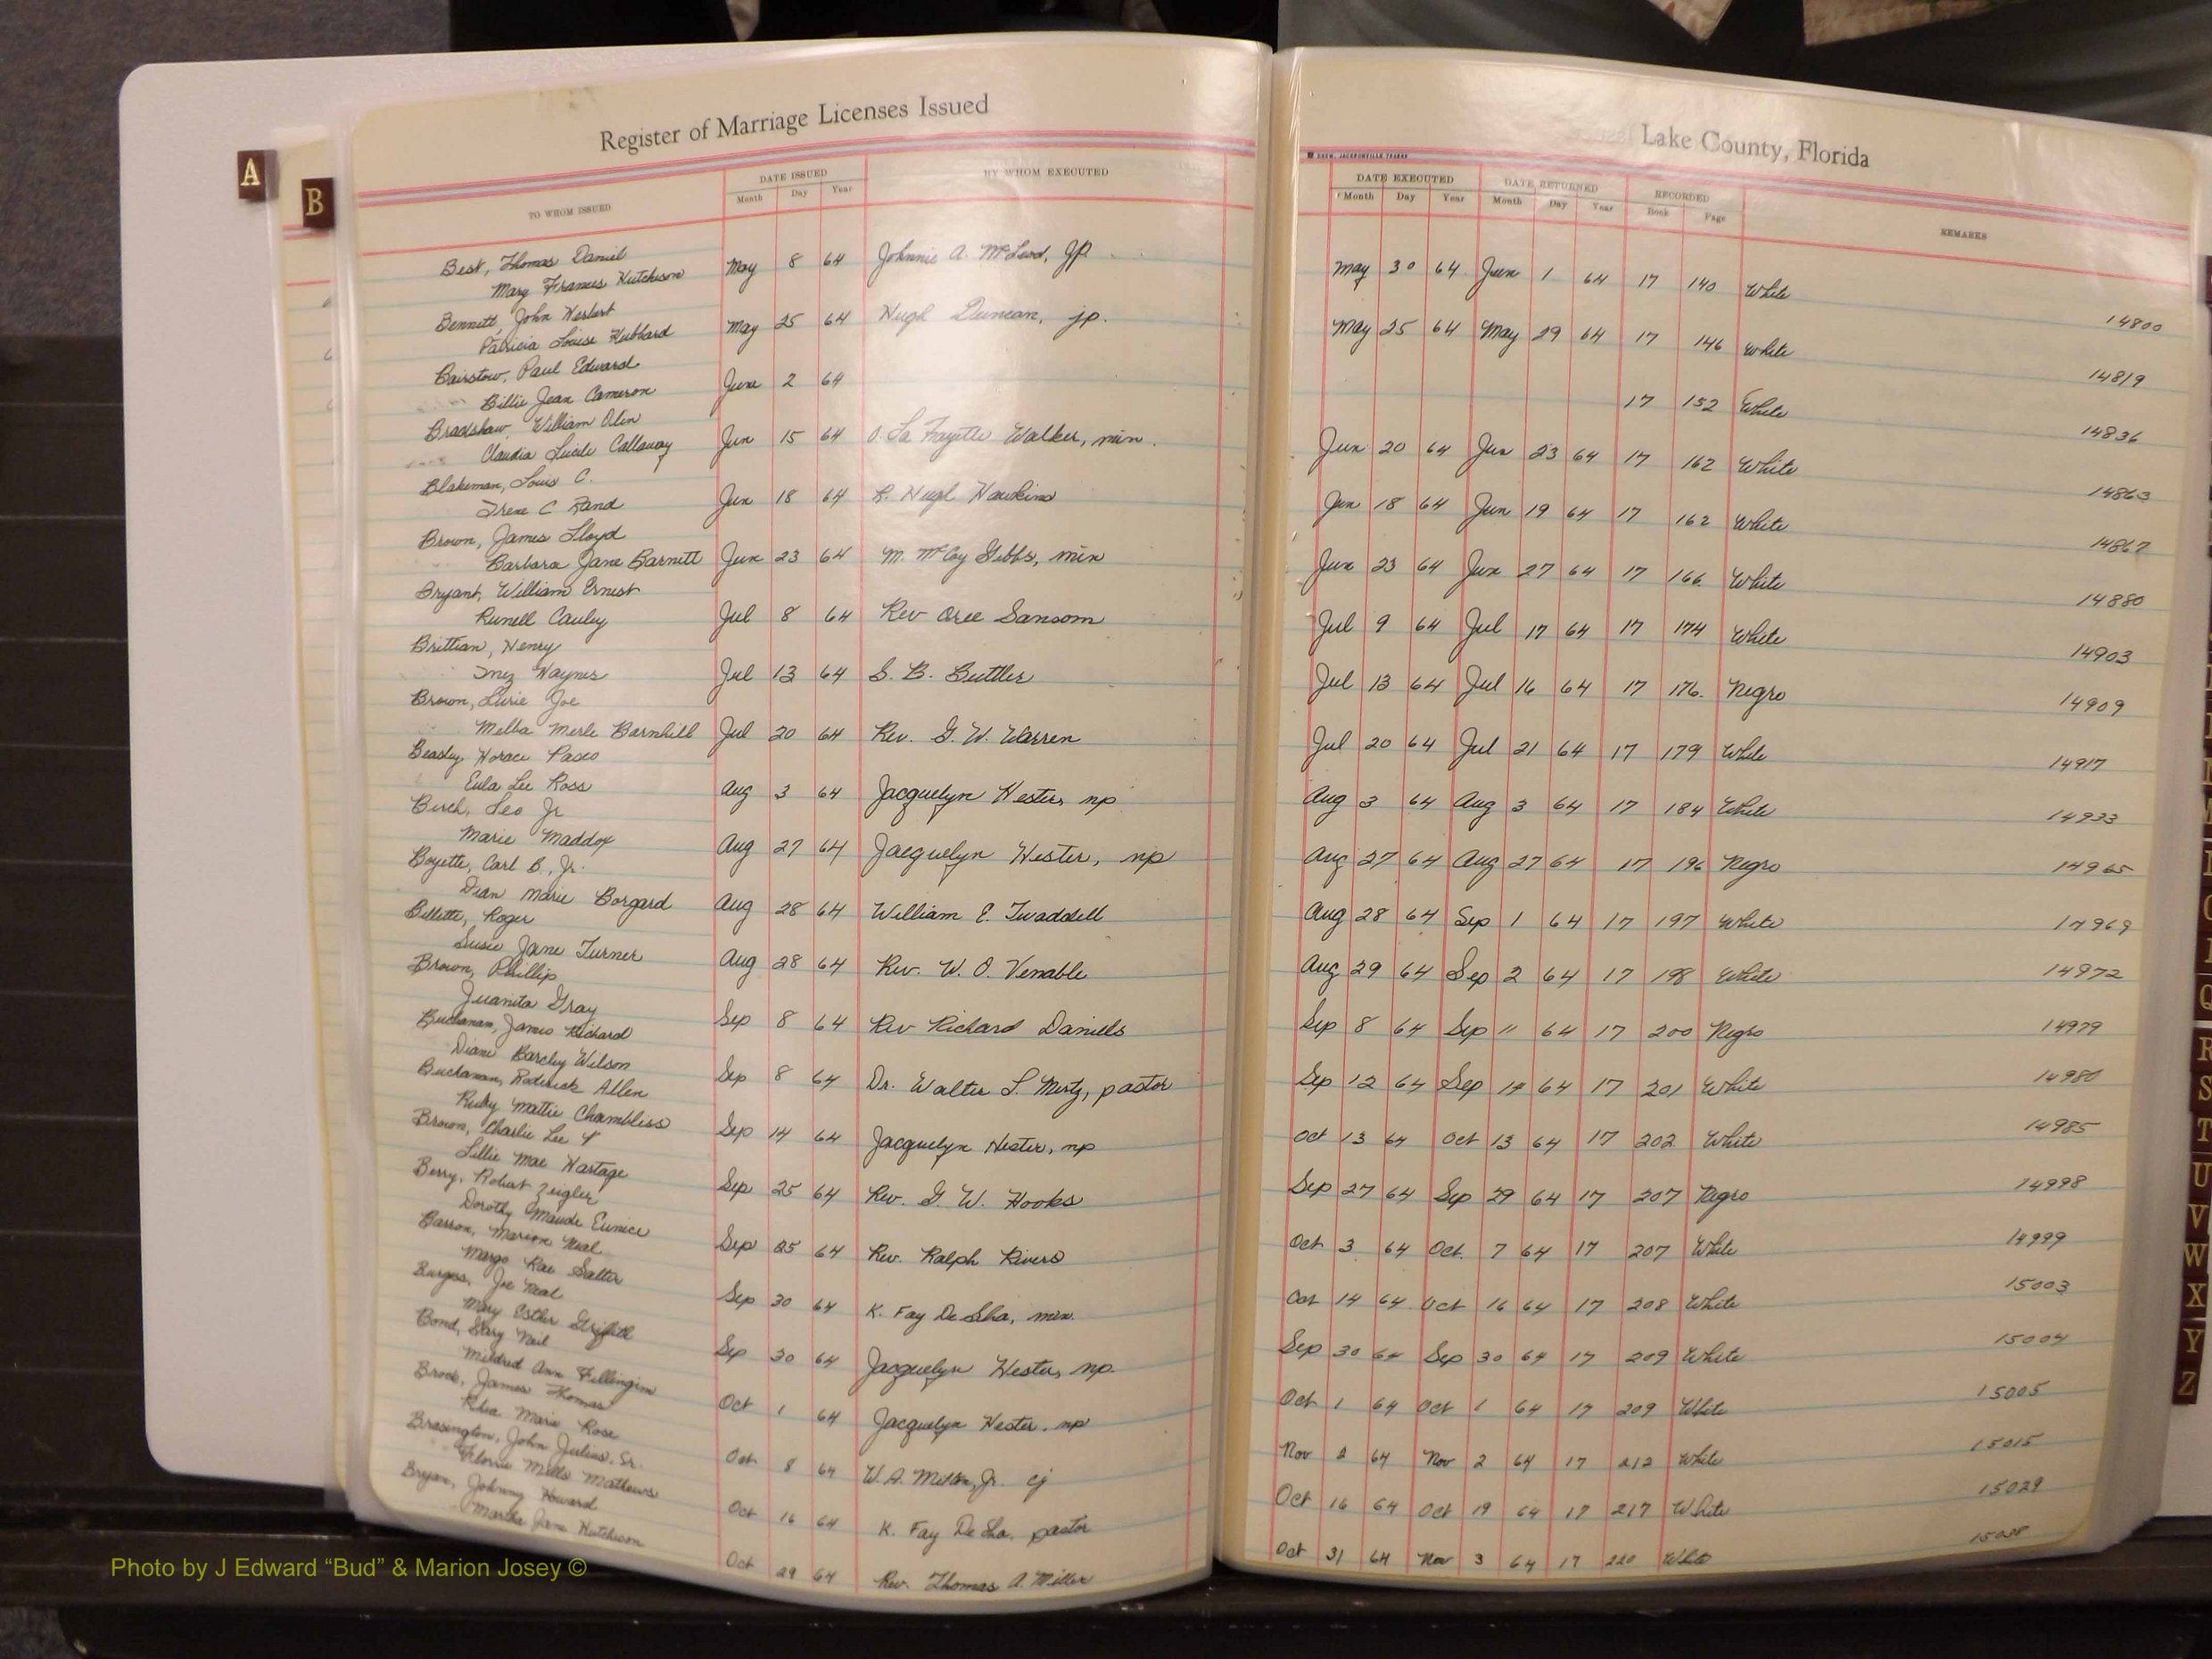 Register of Marriage Licenses Issued
Lake County, Florida
A
B
TO WHOM ISSUED
DATE ISSUED
Month Day Year
BY WHOM EXECUTED
DREW, JACKSONVILLE
DATE EXECUTED
Month Day Year
DATE RETURNED
Month Day Year
RECORDED
Book Page
REMARKS
Best, Thomas Daniel
Mary Frances Hutchison May 8 64 Johnnie A. McLeod, JP. May 30 64 Jun 1 64 17 140 White 14800
Bennett, John Herbert
Patricia Louise Hubbard May 25 64 Hugh Duncan, jp. May 25 64 May 29 64 17 146 White 14819
Bairstow, Paul Edward
Billie Jean Cameron June 2 64 17 152 White 14836
Bradshaw, William Olin
Claudia Lucile Callaway Jun 15 64 O. La Fayette Walker, min. Jun 20 64 Jun 23 64 17 162 White 14863
Blakeman, Louis C.
Irene C Rand Jun 18 64 R. Hugh Hawkins Jun 18 64 Jun 19 64 17 162 White 14867
Brown, James Lloyd
Barbara Jane Barnett Jun 23 64 M. McCoy Gibbs, min Jun 23 64 Jun 27 64 17 166 White 14880
Bryant, William Ernest
Runell Cauley Jul 8 64 Rev Oree Sansom Jul 9 64 Jul 17 64 17 174 White 14903
Brittian, Henry
Inez Haynes Jul 13 64 S. B. Buttler Jul 13 64 Jul 16 64 17 176. Negro 14909
Brown, Lurie Joe
Melba Merle Barnhill Jul 20 64 Rev. G. W. Warren Jul 20 64 Jul 21 64 17 179 White 14917
Beasley, Horace Pasco
Eula Lee Ross Aug 3 64 Jacquelyn Hester, np Aug 3 64 Aug 3 64 17 184 White 14933
Burch, Leo Jr
Marie Maddox Aug 27 64 Jacquelyn Hester, np Aug 27 64 Aug 27 64 17 196 Negro 14965
Boyette, Carl B., Jr.
Dian Marie Borgard Aug 28 64 William E. Twaddell Aug 28 64 Sep 1 64 17 197 White 14969
Billette, Roger
Susie Jane Turner Aug 28 64 Rev. W. O. Venable Aug 29 64 Sep 2 64 17 198 White 14972
Brown, Phillip
Juanita Gray Sep 8 64 Rev Richard Daniels Sep 8 64 Sep 11 64 17 200 Negro 14979
Buchanan, James Richard
Diane Barcley Wilson Sep 8 64 Dr. Walter L. Mertz, pastor Sep 12 64 Sep 14 64 17 201 White 14980
Buchanan, Roderick Allen
Ruby Mattie Chambliss Sep 14 64 Jacquelyn Hester, np Oct 13 64 Oct 13 64 17 202 White 14985
Brown, Charlie Lee
Lillie Mae Hartage Sep 25 64 Rev. G. W. Hooks Sep 27 64 Sep 29 64 17 207 Negro 14998
Berry, Robert Zeigler
Dorothy Maude Eunice Sep 25 64 Rev. Ralph Rivers Oct 3 64 Oct. 7 64 17 207 White 14999
Barron, Marion Neal
Margo Rae Salter Sep 30 64 K. Fay De Sha, min. Oct 14 64 Oct 16 64 17 208 White 15003
Burgess, Joe Neal
Mary Esther Griffith Sep 30 64 Jacquelyn Hester, np. Sep 30 64 Sep 30 64 17 209 White 15004
Bond, Gary Neil
Mildred Ann Fillingim Oct 1 64 Jacquelyn Hester, np Oct 1 64 Oct 1 64 17 209 White 15005
Brock, James Thomas
Rhea Marie Rose Oct 8 64 W. A. Milton, Jr. cj Nov 2 64 Nov 2 64 17 212 White 15015
Brasington, John Julius, Sr.
Florrie Mills Mathews Oct 16 64 K. Fay De Sha, pastor Oct 16 64 Oct 19 64 17 217 White 15029
Bryan, Johnny Howard
Martha Jane Hutchison Oct 29 64 Rev. Thomas A. Miller Oct 31 64 Nov 3 64 17 220 White 15038
Q
R
S
T
U
V
W
X
Y
Z
Photo by J Edward “Bud” & Marion Josey ©